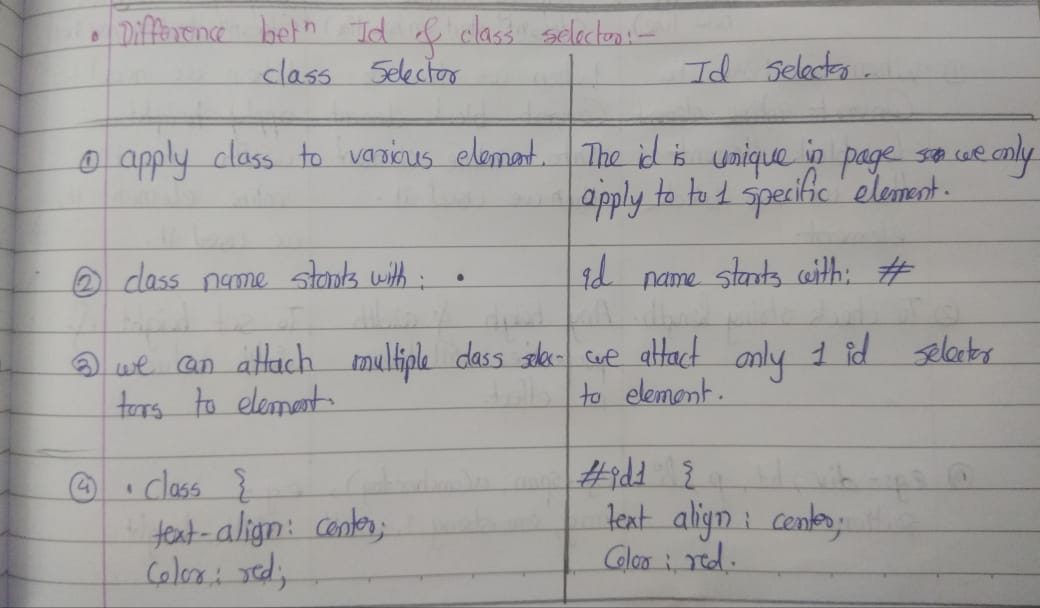 • Difference betn Id & class selector:-
class Selector
Id selector.
① apply class to various element.
The id is unique in page so we only
apply to to 1 specific element.
② class name starts with: •
id name starts with: #
③ we can attach multiple class selec-
tors to element.
we attact only 1 id selector
to element.
④ . class {
text-align: center;
Color: red;
#id1 {
text align: center;
Color: red.